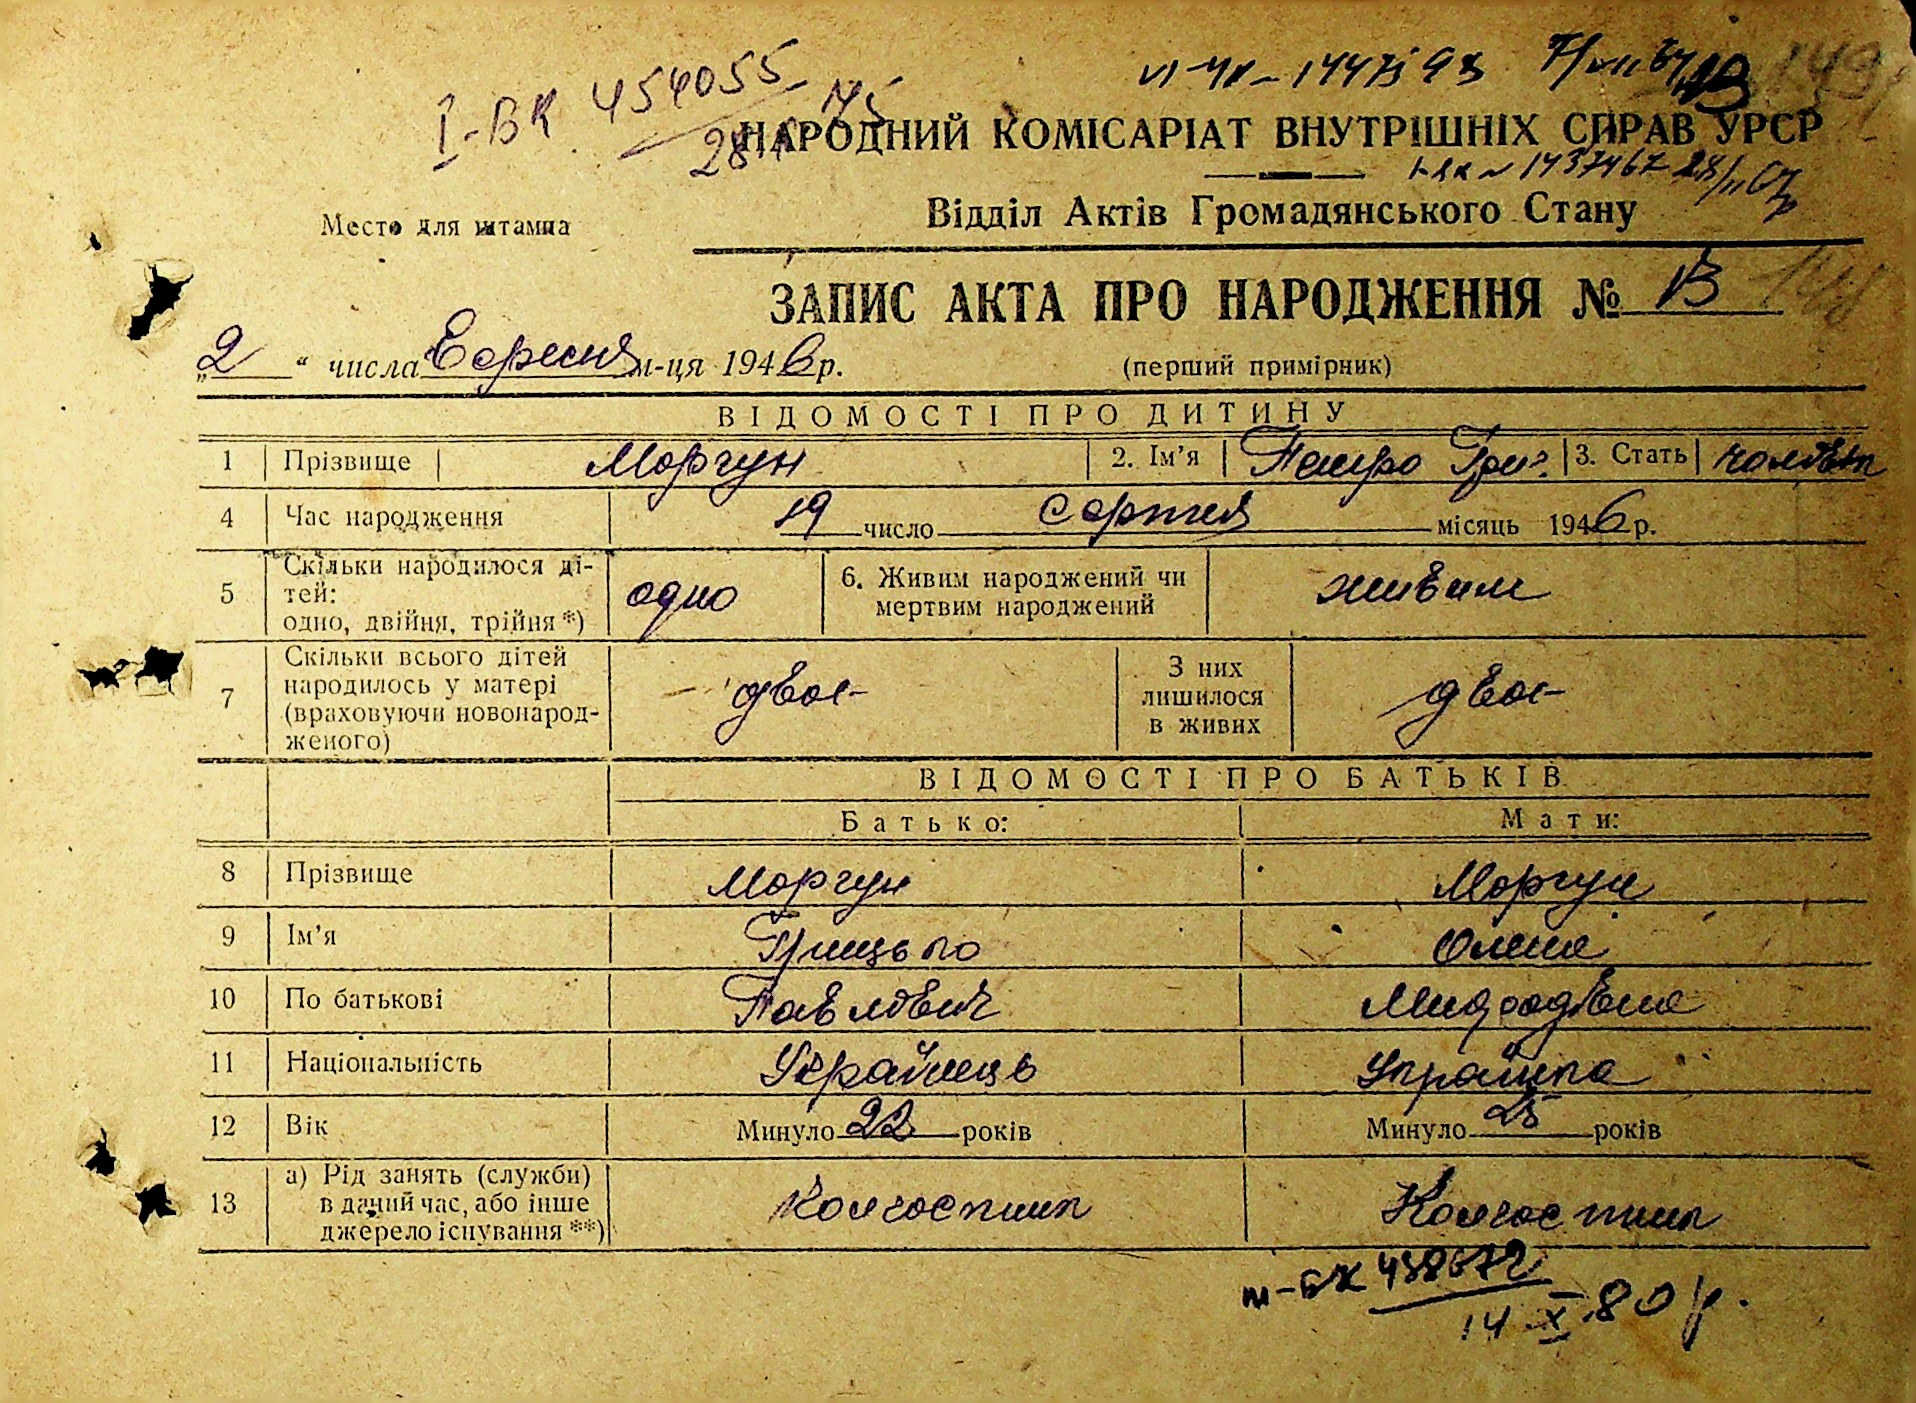 I-ВК 454055
НАРОДНИЙ КОМІСАРІАТ ВНУТРІШНІХ СПРАВ УРСР
Место для штампа
Відділ Актів Громадянського Стану
ЗАПИС АКТА ПРО НАРОДЖЕННЯ № 13
„2“ числа Вересня м-ця 1946 р. (перший примірник)
ВІДОМОСТІ ПРО ДИТИНУ
1 Прізвище Моргун 2. Ім’я Петро Гри. 3. Стать чоловіч
4 Час народження 19 число серпня місяць 1946 р.
5 Скільки народилося ді-
тей:
одно, двійня, трійня *) одно 6. Живим народжений чи
мертвим народжений живим
7 Скільки всього дітей
народилось у матері
(враховуючи новонарод-
женого) двоє З них
лишилося
в живих двоє
ВІДОМОСТІ ПРО БАТЬКІВ
Батько: Мати:
8 Прізвище Моргун Моргун
9 Ім’я Грицько Олена
10 По батькові Павлович
11 Національність Українець Українка
12 Вік Минуло 22 років Минуло 25 років
13 а) Рід занять (служби)
в даний час, або інше
джерело існування **) Колгоспник Колгоспник
14 X 80 р.